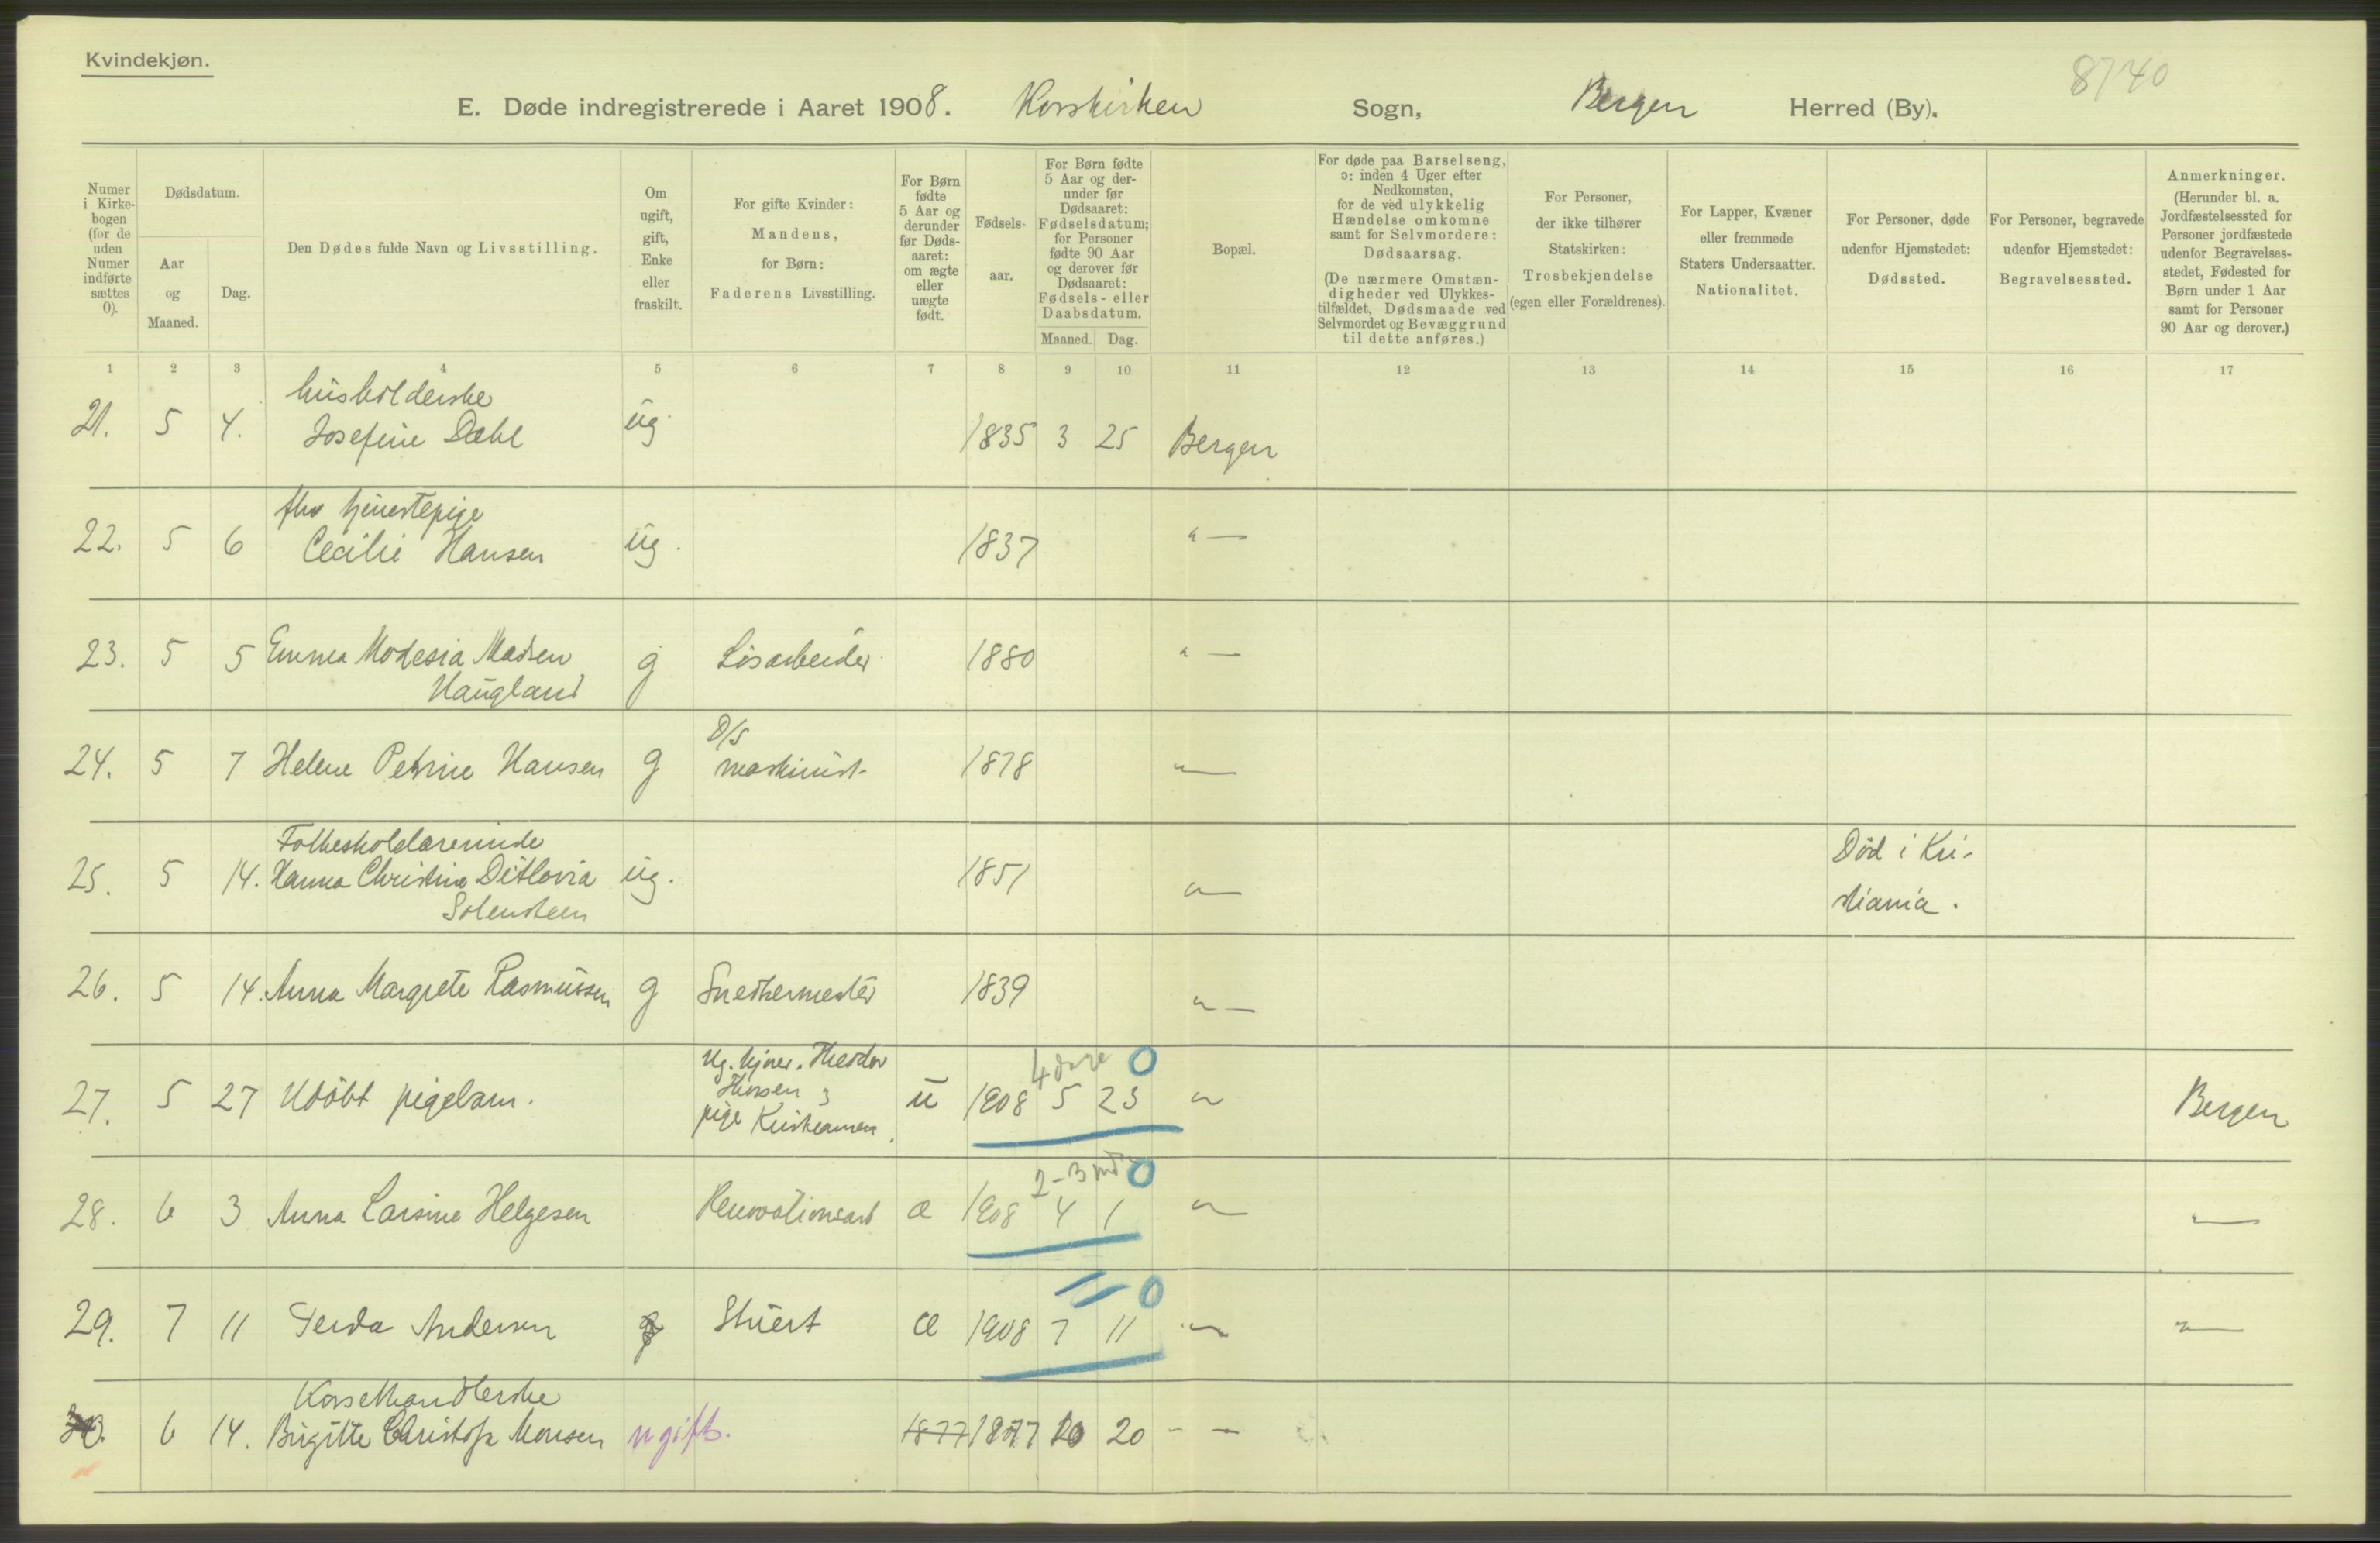 Kvindekjøn.
8740
E. Døde indregistrerede i Aaret 1908. Korskirken Sogn, Bergen Herred (By).
Numer i Kirke-bogen (for de uden Numer indførte sættes 0).
Dødsdatum.
Aar og Maaned.
Dag.
Den Dødes fulde Navn og Livsstilling.
Om ugift, gift, Enke eller fraskilt.
For gifte Kvinder: Mandens, for Børn: Faderens Livsstilling.
For Børn fødte 5 Aar og derunder før Døds-aaret: om ægte eller uægte født.
Fødsels-aar.
For Børn fødte 5 Aar og der-under før Dødsaaret: Fødselsdatum; for Personer fødte 90 Aar og derover før Dødsaaret: Fødsels- eller Daabsdatum.
Maaned. Dag.
Bopæl.
For døde paa Barselseng, ɔ: inden 4 Uger efter Nedkomsten, for de ved ulykkelig Hændelse omkomne samt for Selvmordere: Dødsaarsag. (De nærmere Omstæn-digheder ved Ulykkes-tilfældet, Dødsmaade ved Selvmordet og Bevæggrund til dette anføres.)
For Personer, der ikke tilhører Statskirken: Trosbekjendelse (egen eller Forældrenes).
For Lapper, Kvæner eller fremmede Staters Undersaatter. Nationalitet.
For Personer, døde udenfor Hjemstedet: Dødssted.
For Personer, begravede udenfor Hjemstedet: Begravelsessted.
Anmerkninger. (Herunder bl. a. Jordfæstelsessted for Personer jordfæstede udenfor Begravelses-stedet, Fødested for Børn under 1 Aar samt for Personer 90 Aar og derover.)
1 2 3 4 5 6 7 8 9 10 11 12 13 14 15 16 17
husholderske
21. 5 4. Josefine Dahl ug. 1835 3 25 Bergen
fhv tjenestepige
22. 5 6 Cecilie Hansen ug. 1837 " —
23. 5 5 Emma Modesia Madsen g Løsarbeider 1880 " —
Haugland
D/S
24. 5 7 Helene Petrine Hansen g maskinist 1878 " —
Folkeskolelærerinde
25. 5 14. Hanna Christine Ditlovia ug. 1851 " — Død i Kri-
Solensteen stiania.
26. 5 14. Anna Margrete Rasmussen g Snedkermester 1839 " —
Ug. Theodor 4 dage 0
27. 5 27 Udøbt pigebarn. u 1908 5 23 " Bergen
pige Kristiansen
2-3 md 0
28. 6 3 Anna Larsine Helgesen Renovationsarb æ 1908 4 1 " — " —
0
29. 7 11 Gerda Andersen g Stuert æ 1908 7 11 " — " —
Korsethandlerske
30. 6 14. Birgitte Christofa Monsen ugift. 1877 1877 10 20 - —